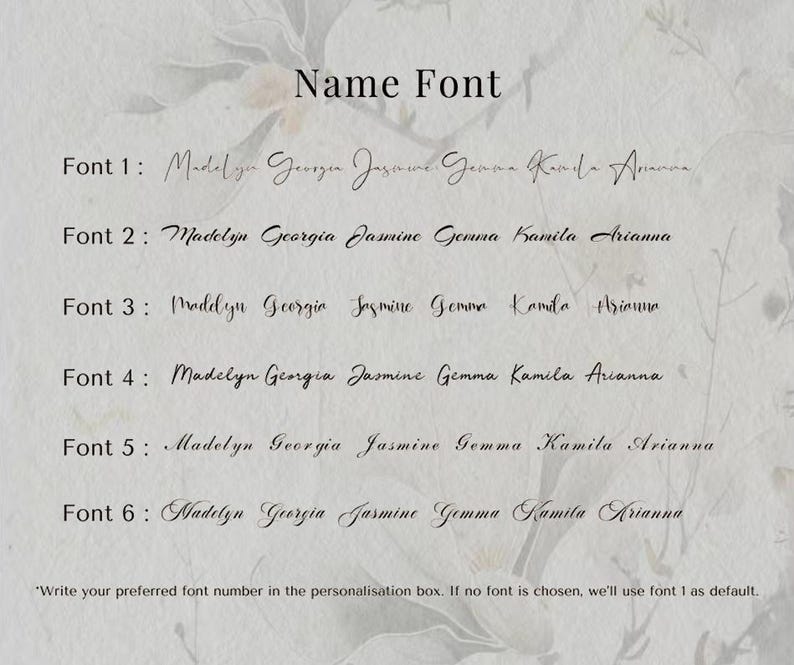 Name Font
Font 1 : Madelyn Georgia Jasmine Gemma Kamila Arianna
Font 2 : Madelyn Georgia Jasmine Gemma Kamila Arianna
Font 3 : Madelyn Georgia Jasmine Gemma Kamila Arianna
Font 4 : Madelyn Georgia Jasmine Gemma Kamila Arianna
Font 5 : Madelyn Georgia Jasmine Gemma Kamila Arianna
Font 6 : Madelyn Georgia Jasmine Gemma Kamila Arianna
*Write your preferred font number in the personalisation box. If no font is chosen, we'll use font 1 as default.